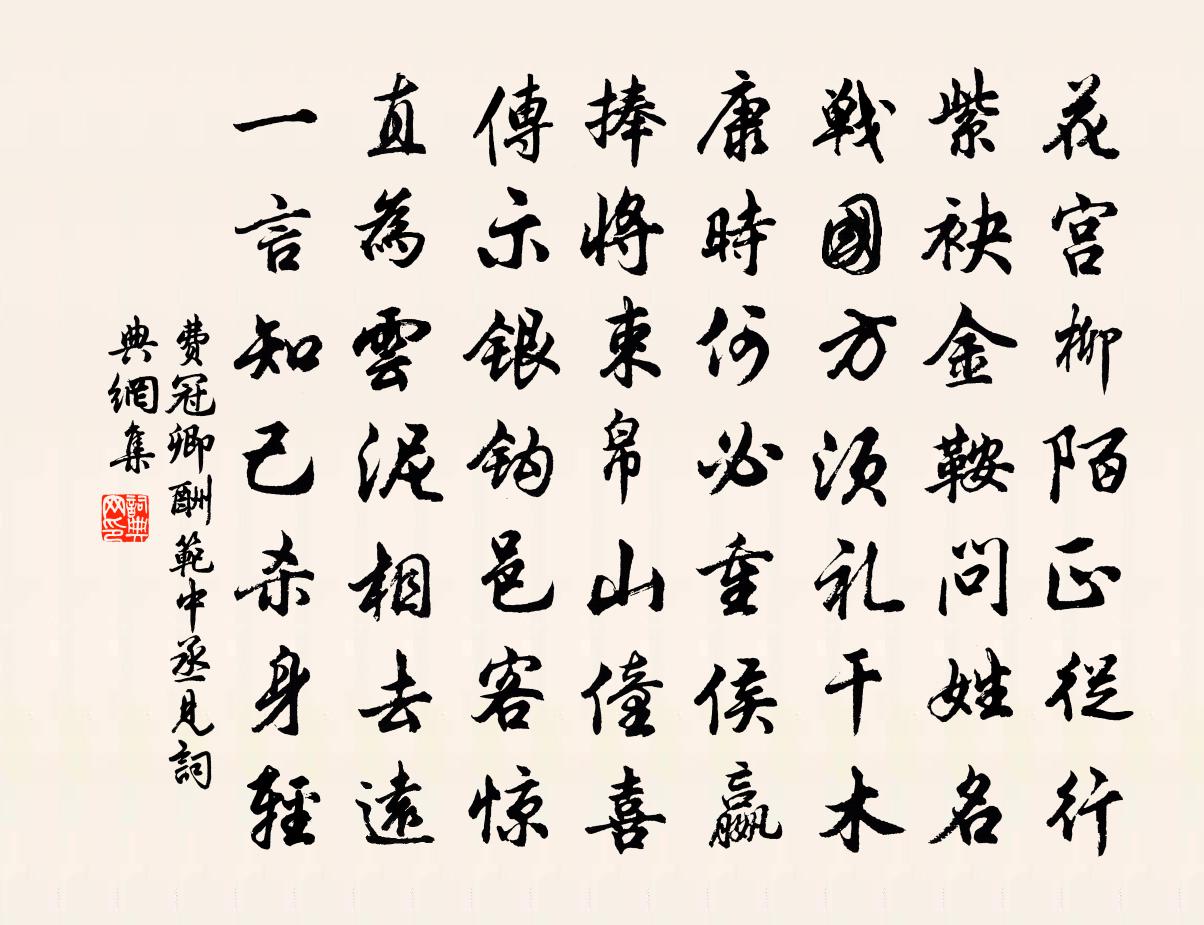 花宮柳陌正從行
紫袂金鞍問姓名
戦國方須礼干木
康時何必重侯嬴
捧將束帛山僮喜
傳示銀鈎邑客惊
直為雲泥相去遠
一言知己杀身輕
費冠卿酬範中丞見詞
典網集
詞典網印